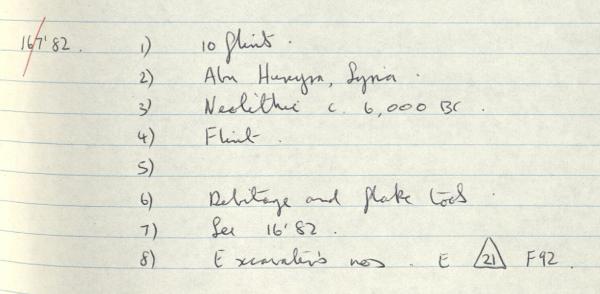 167'82. 1) 10 flint.
2) Abu Hureyra, Syria.
3) Neolithic c. 6,000 BC.
4) Flint.
5)
6) Debitage and flake tools.
7) See 16'82.
8) Excavator's nos. E 21 F92